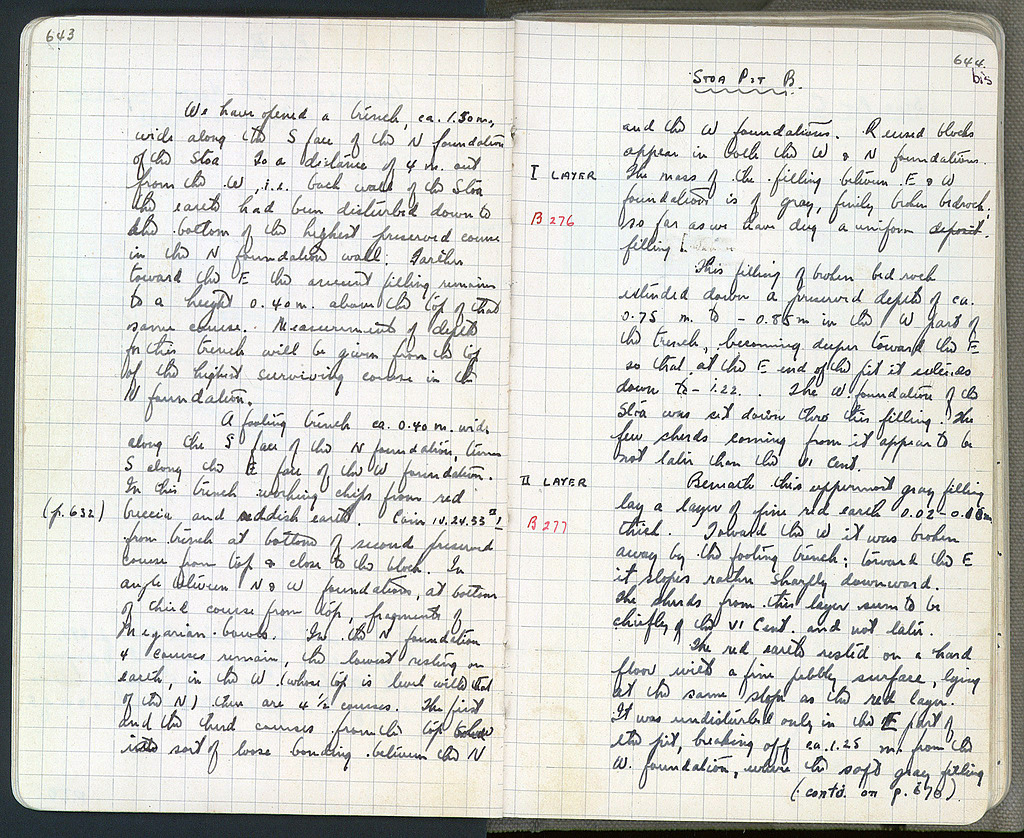 643
We have opened a trench, ca. 1.50 m.
wide along the S face of the N foundation
of the Stoa. To a distance of 4 m. out
from the W, i.e. back wall of the Stoa
the earth had been disturbed down to
the bottom of the highest preserved course
in the N foundation wall. Farther
toward the E the ancient filling remains
to a height 0.40 m. above the top of that
same course. Measurements of depth
in this trench will be given from the top
of the highest surviving course in the
N foundation.
A footing trench ca. 0.40 m. wide
along the S face of the N foundation, turns
S along the E face of the W foundation.
In this trench working chips from red
(p. 632) breccia and reddish earth. Coin 14.24.33 #1
from trench at bottom of second preserved
course from top & close to the block. In
angle between N & W foundations, at bottom
of third course from top, fragments of
Megarian bowls. In the N foundation
4 courses remain, the lowest resting on
earth, in the W (whose top is level with that
of the N) there are 4 1/2 courses. The first
and the third courses from the top
sort of loose bonding between the N
644
bis
STOA PIT B.
and the W foundations. Reused blocks
appear in both the W & N foundations.
I LAYER The mass of the filling between E & W
foundations is of gray, finely broken bedrock,
B 276 so far as we have dug a uniform deposit.
filling.
This filling of broken bedrock
extended down a preserved depth of ca.
0.75 m. to - 0.85 m in the W part of
the trench, becoming deeper toward the E
so that at the E end of the pit it extends
down to - 1.22. The W foundation of the
Stoa was set down thro this filling. The
few sherds coming from it appear to be
not later than the VI Cent.
II LAYER Beneath this uppermost gray filling
lay a layer of fine red earth 0.02 - m
B 277 thick. Toward the W it was broken
away by the footing trench; toward the E
it slopes rather sharply downward.
The sherds from this layer seem to be
chiefly of the VI Cent. and not later.
The red earth rested on a hard
floor with a fine pebbly surface, lying
at the same slope as the red layer.
It was undisturbed only in the E part of
the pit, breaking off ca. 1.25 m. from the
W. foundation, where the soft gray filling
(contd. on p. 670).